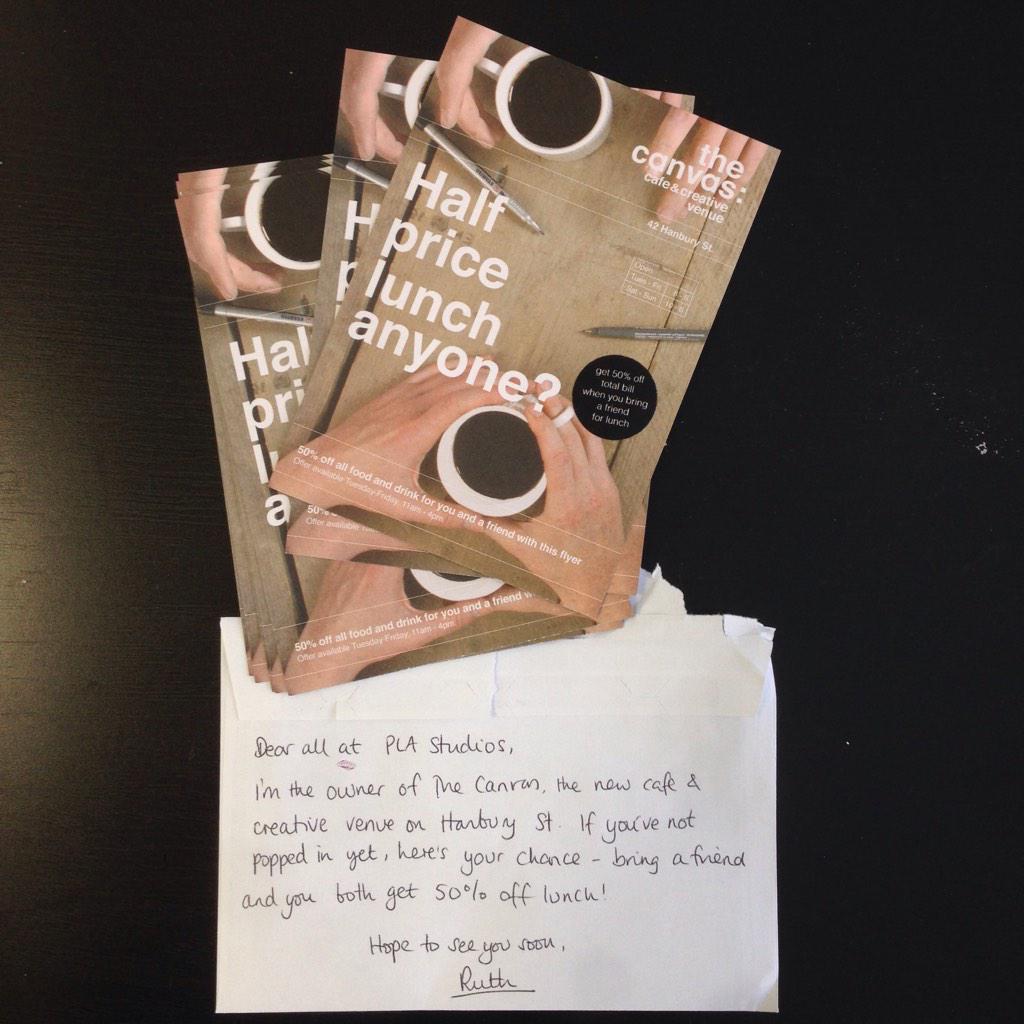 the
canvas:
cafe & creative
venue
42 Hanbury St.
Open
Tues - Fri
Sat - Sun
Half
price
lunch
anyone?
get 50% off
total bill
when you bring
a friend
for lunch
50% off all food and drink for you and a friend with this flyer
Offer available Tuesday-Friday, 11am - 4pm.
H
p
50%
Offer available
Hal
pri
lu
a
50% off all food and drink for you and a friend w
Offer available Tuesday-Friday, 11am - 4pm.
Dear all at PLA Studios,
I'm the owner of The Canvas, the new cafe &
creative venue on Hanbury St. If you've not
popped in yet, here's your chance - bring a friend
and you both get 50% off lunch!
Hope to see you soon,
Ruth